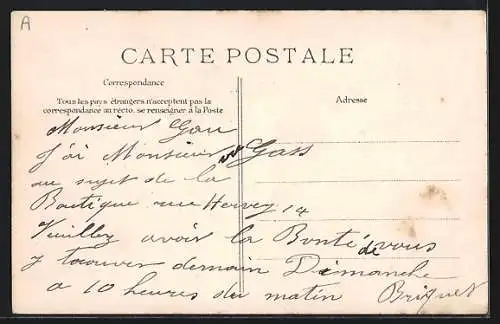 A
CARTE POSTALE
Correspondance
Tous les pays étrangers n'acceptent pas la
correspondance au recto, se renseigner à la Poste
Adresse
Monsieur
J'ai Monsieur vu Gass
au sujet de la
Boutique rue Hervey 14
Veuillez avoir la Bonté de vous
y trouver demain Dimanche
a 10 heures du matin Briquet